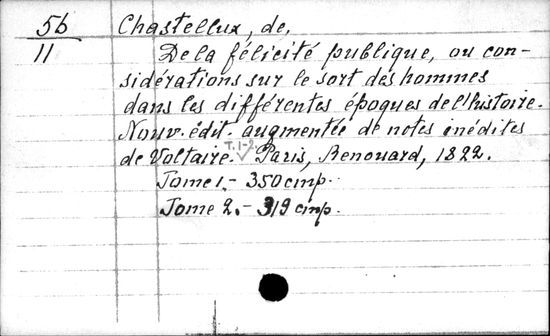 56
11
Chastellux, de,
De la félicité publique, ou con-
sidérations sur le sort des hommes
dans les différentes époques de l'histoire.
Nouv. édit. augmentée de notes inédites
T. 1-2
de Voltaire. Paris, Renouard, 1822.
Tome 1. - 350 стр.
Tome 2. - 319 стр.